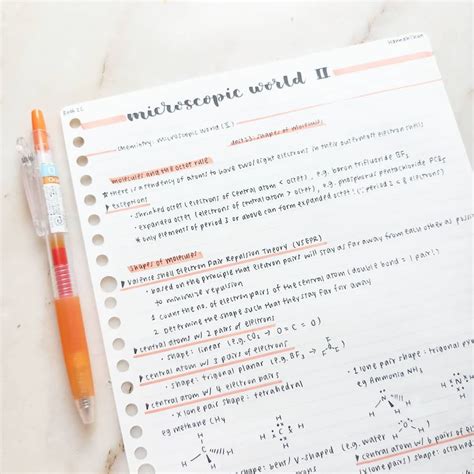 microscopic world II
chemistry: microscopic world (II)
unit : shapes of molecules
molecules and the octet rule
there is a tendency of atoms to have two/eight electrons in their outermost electron shells
Exceptions
• shrinked octet (electrons of central atom < octet), e.g. boron trifluoride BF3
• expanded octet (electrons of central atom > octet), e.g. phosphorus pentachloride PCl5
* only elements of period 3 or above can form expanded octet! (∵ period 2 ≤ 8 electrons)
shapes of molecules
Valence Shell Electron Pair Repulsion Theory (VSEPR)
• based on the principle that electron pairs will stay as far away from each other as
to minimize repulsion
1 count the no. of electron pairs of the central atom (double bond = 1 pair!)
2 Determine the shape such that they stay far away
central atoms w/ 2 pairs of electrons
• shape: linear (e.g. CO2 → O = C = O)
central atom w/ 3 pairs of electrons
• shape: trigonal planar (e.g. BF3 →
central atom w/ 4 electron pairs
• X lone pair shape: tetrahedral
eg methane CH4
1 lone pair shape: trigonal
eg Ammonia NH3
shape: bent/ v-shaped (e.g. water
central atom w/ 6 pairs of
shape: